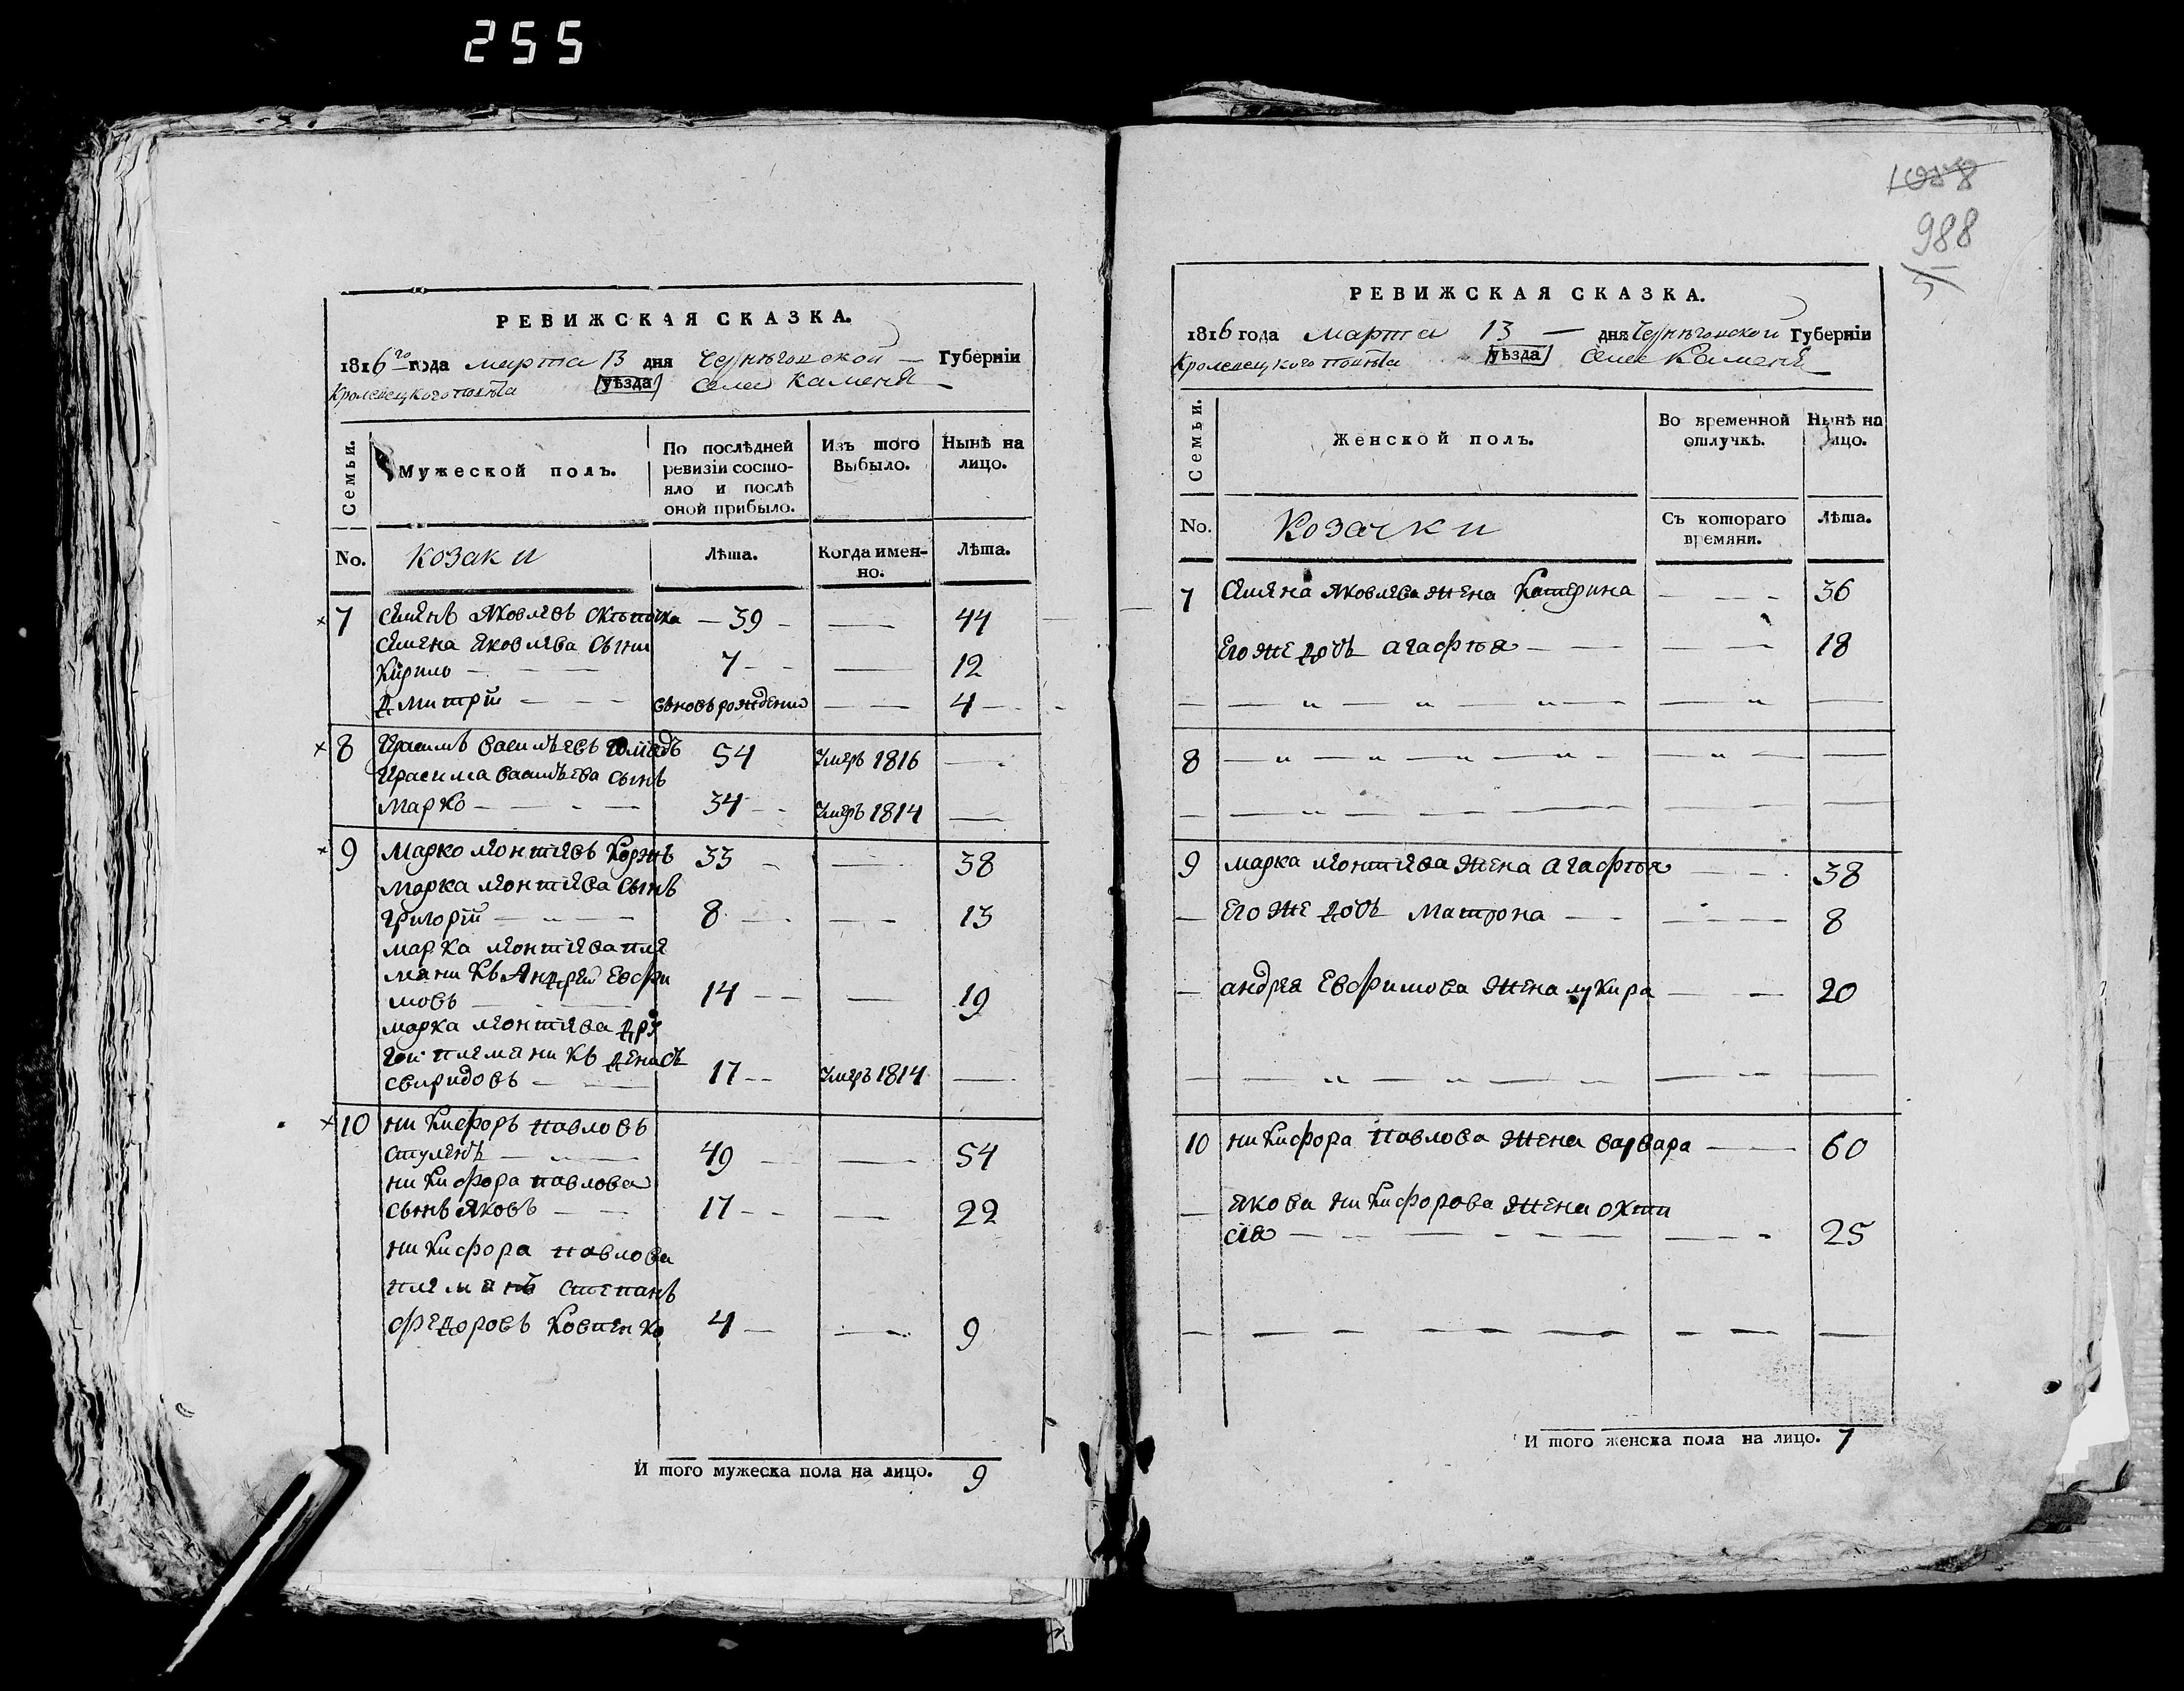 255
РЕВИЖСКАЯ СКАЗКА.
1816го года марта 13 дня Чернѣговской Губерніи
Кролевецкого повѣта уѣзда Село Каменя
Семьи.
Мужеской полъ.
По послѣдней ревизіи состояло и послѣ оной прибыло.
Изъ того Выбыло.
Нынѣ на лицо.
No.
козаки
Лѣта.
Когда именно.
Лѣта.
7 Семенъ Яковлевъ 39 44
Семена Яковлева сыны
Кирило 7 12
Дмитрій вновь рожденни 4
8 Герасимъ Васильевъ 54 Умеръ 1816
Герасима Васильева сынъ
Марко 34 Умеръ 1814
9 Марко Леонтіевъ Коржъ 33 38
Марка Леонтіева сынъ
Григорій 8 13
Марка Леонтіева пле
маникъ Андрей Евфи
мовъ 14 19
Марка Леонтіева дру
гой племаникъ Денисъ
Свиридовъ 17 Умеръ 1814
10 Никифоръ Павловъ
Ступень 49 54
Никифора Павлова
сынъ Яковъ 17 22
Никифора Павлова
племянъ Степанъ
Федоровъ 4 9
И того мужеска пола на лицо. 9
1088
988
РЕВИЖСКАЯ СКАЗКА.
1816 года Марта 13 дня Чернѣговской Губерніи
Кролевецкого повѣта уѣзда Село Каменя
Семьи.
Женской полъ.
Во временной отлучкѣ.
Нынѣ на лицо.
No.
Козачки
Съ котораго времяни.
Лѣта.
7 Семена Яковлева жена Катерина 36
Его же дочь Агафья 18
8
9 Марка Леонтіева жена Агафья 38
Его же дочь Матрона 8
Андрея Евфимова жена Лукира 20
10 Никифора Павлова жена Варвара 60
Якова Никифорова жена Окти
сія 25
И того женска пола на лицо. 7